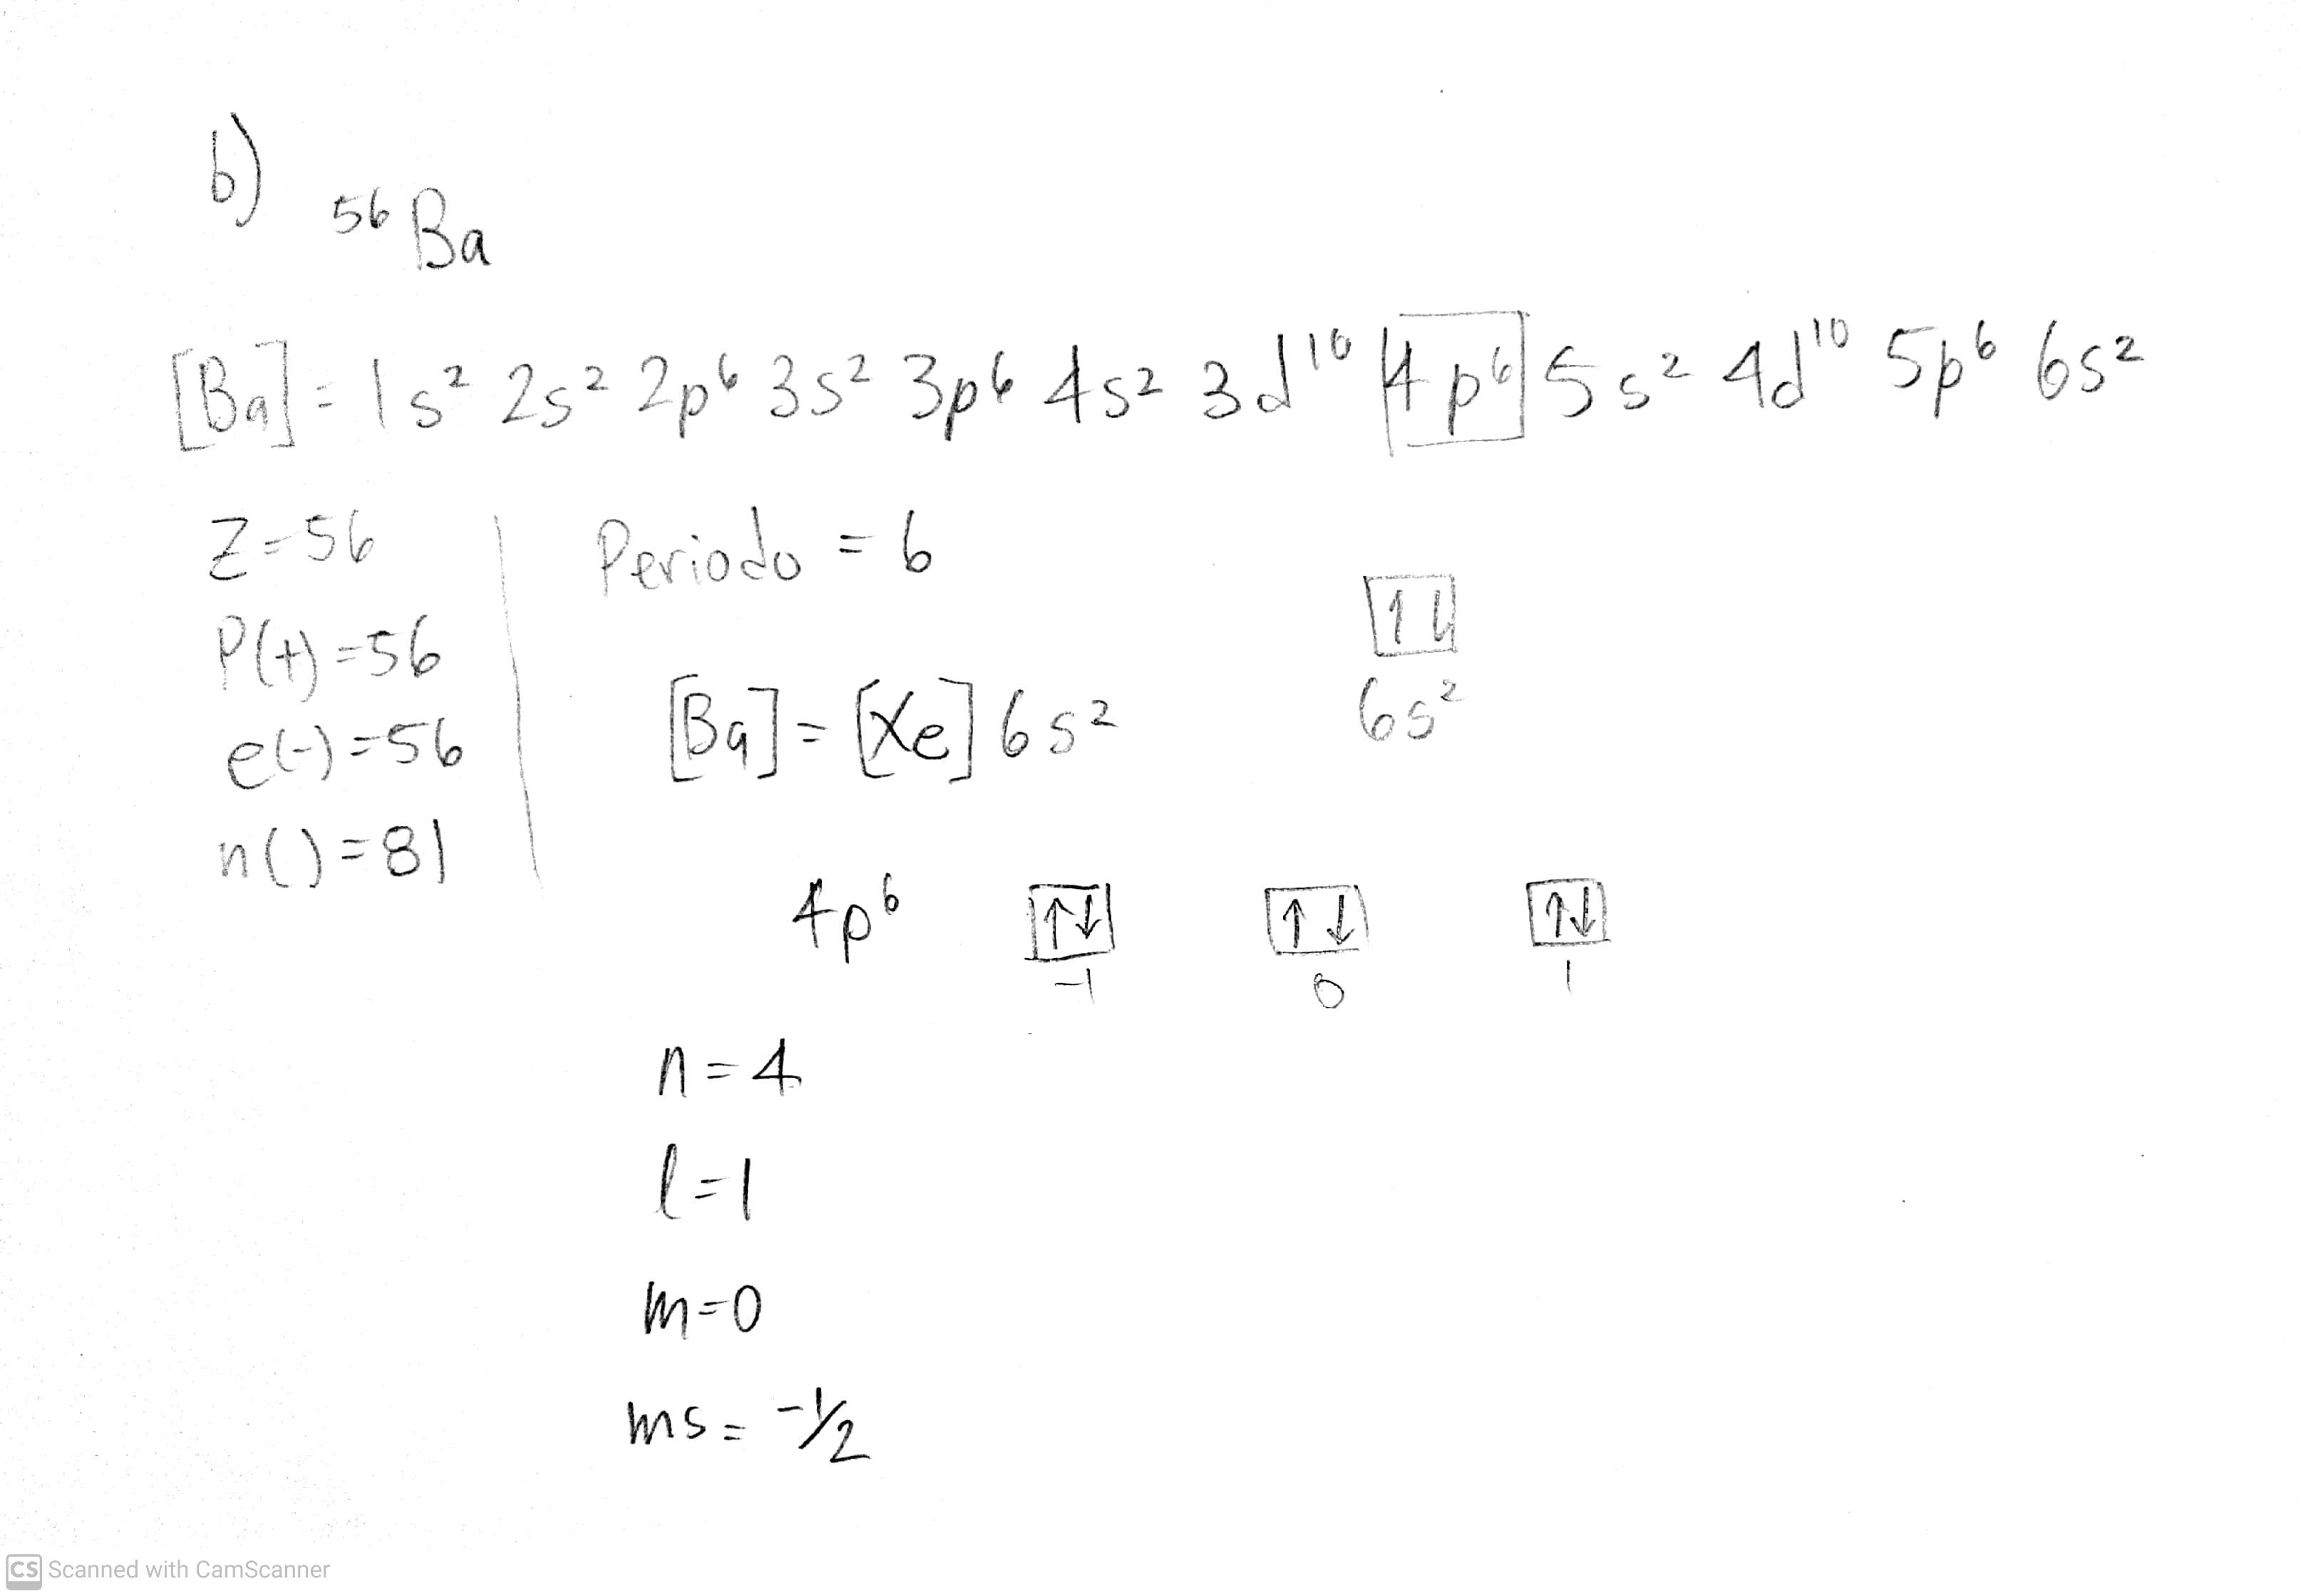 b)
56 Ba
[Ba] = 1s² 2s² 2p⁶ 3s² 3p⁶ 4s² 3d¹⁰ 4p⁶ 5s² 4d¹⁰ 5p⁶ 6s²
Z=56
P(+)=56
e(-)=56
n()=81
Periodo = 6
↑↓
6s²
[Ba] = [Xe] 6s²
4p⁶ ↑↓ ↑↓ ↑↓
-1 0 1
n=4
l=1
m=0
ms = -1/2
CS Scanned with CamScanner